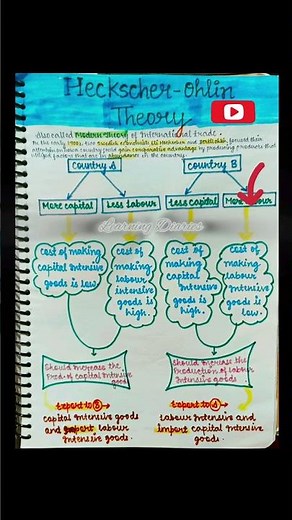 Heckscher-Ohlin
Theory
Also called Modern Theory of International trade.
In the early 1900s, two Swedish economists Eli Heckscher and Bertil Ohlin, focused their
attention on how a country could gain comparative advantage by producing products that
utilized factors that are in abundance in the country.
Country A
Country B
More capital
Less Labour
Less Capital
More Labour
Learning Diaries
Cost of
making
capital intensive
goods is low.
Cost of
making
labour
intensive
goods is
high.
Cost of
making
capital
intensive
goods is
high.
Cost of
making
labour
intensive
goods is
low.
Should increase the
Prod. of capital intensive
good
Should increase the
Production of labour
intensive goods
Export to B →
capital intensive goods
and import labour
intensive goods.
Export to A →
Labour intensive and
import capital intensive
goods.